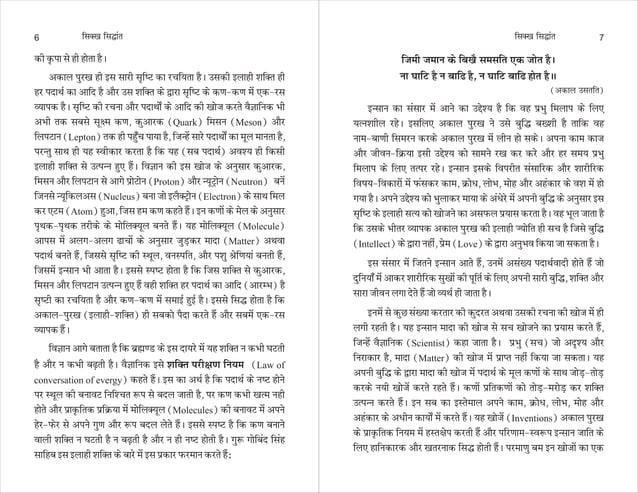 6
सिक्ख सिद्धांत
की कृपा से ही होता है।
अकाल पुरख ही इस सारी सृष्टि का रचयिता है। उसकी इलाही शक्ति ही
हर पदार्थ का आदि है और उस शक्ति के द्वारा सृष्टि के कण-कण में एक-रस
व्यापक है। सृष्टि की रचना और पदार्थों के आदि की खोज करते वैज्ञानिक भी
अभी तक सबसे सूक्ष्म कण, कुआरक (Quark) मिसन (Meson) और
लिपटान (Lepton) तक ही पहुँच पाया है, जिन्हें सारे पदार्थों का मूल मानता है,
परन्तु साथ ही यह स्वीकार करता है कि यह (सब पदार्थ) अवश्य ही किसी
इलाही शक्ति से उत्पन्न हुए हैं। विज्ञान की इस खोज के अनुसार कुआरक,
मिसन और लिपटान से आगे प्रोटोन (Proton) और न्यूट्रोन (Neutron) बनें
जिनसे न्यूकिलअस (Nucleus) बना जो इलैक्ट्रोन (Electron) के साथ मिल
कर एटम (Atom) हुआ, जिस हम कण कहते हैं। इन कणों के मेल के अनुसार
पृथक-पृथक तरीके के मोलिक्यूल बनते हैं। यह मोलिक्यूल (Molecule)
आपस में अलग-अलग ढाचों के अनुसार जुड़कर मादा (Matter) अथवा
पदार्थ बनते हैं, जिससे सृष्टि की स्थूल, वनस्पति, और पशु श्रेणियां बनती हैं,
जिसमें इन्सान भी आता है। इससे स्पष्ट होता है कि जिस शक्ति से कुआरक,
मिसन और लिपटान उत्पन्न हुए हैं वही शक्ति हर पदार्थ का आदि (आरम्भ) है
सृष्टी का रचयिता है और कण-कण में समाई हुई है। इससे सिद्ध होता है कि
अकाल-पुरख (इलाही-शक्ति) ही सबको पैदा करते हैं और सबमें एक-रस
व्यापक हैं।
विज्ञान आगे बताता है कि ब्रह्मण्ड के इस दायरे में यह शक्ति न कभी घटती
है और न कभी बढ़ती है। वैज्ञानिक इसे शक्ति परीक्षण नियम (Law of
conversation of evergy) कहते हैं। इस का अर्थ है कि पदार्थ के नष्ट होने
पर स्थूल की बनावट निश्चित रूप से बदल जाती है, पर कण कभी खत्म नही
होते और प्राकृतिक प्रक्रिया में मोलिक्यूल (Molecules) की बनावट में अपने
हेर-फेर से अपने गुण और रूप बदल लेते हैं। इससे स्पष्ट है कि कण बनाने
वाली शक्ति न घटती है न बढ़ती है और न ही नष्ट होती है। गुरू गोबिंद सिंह
साहिब इस इलाही शक्ति के बारे में इस प्रकार फरमान करते हैं:
सिक्ख सिद्धांत
7
जिमी जमान के बिखै समसति एक जोत है।
ना घाटि है न बाढि है, न घाटि बाढि होत है॥
(अकाल उसतति)
इन्सान का संसार में आने का उद्देश्य है कि वह प्रभु मिलाप के लिए
यत्नशील रहे। इसलिए अकाल पुरख ने उसे बुद्धि बख्शी है ताकि वह
नाम-बाणी सिमरन करके अकाल पुरख में लीन हो सके। अपना काम काज
और जीवन-क्रिया इसी उद्देश्य को सामने रख कर करे और हर समय प्रभु
मिलाप के लिए तत्पर रहे। इन्सान इसके विपरीत संसारिक और शारीरिक
विषय-विकारों में फंसकर काम, क्रोध, लोभ, मोह और अहंकार के वश में हो
गया है। अपने उद्देश्य को भुलाकर माया के अंधेरे में अपनी बुद्धि के अनुसार इस
सृष्टि के इलाही सत्य को खोजने का असफल प्रयास करता है। वह भूल जाता है
कि उसके भीतर व्यापक अकाल पुरख की इलाही ज्योति ही सच है जिसे बुद्धि
(Intellect) के द्वारा नहीं, प्रेम (Love) के द्वारा अनुभव किया जा सकता है।
इस संसार में जितने इन्सान आते हैं, उनमें असंख्य पदार्थवादी होते हैं जो
दुनियाँ में आकर शारीरिक सुखों की पूर्ति के लिए अपनी सारी बुद्धि, शक्ति और
सारा जीवन लगा देते हैं जो व्यर्थ ही जाता है।
इनमें से कुछ संख्या करतार की कुदरत अथवा उसकी रचना की खोज में ही
लगी रहती है। यह इन्सान मादा की खोज से सच खोजने का प्रयास करते हैं,
जिन्हें वैज्ञानिक (Scientist) कहा जाता है। प्रभु (सच) जो अदृश्य और
निराकार है, मादा (Matter) की खोज में प्राप्त नहीं किया जा सकता। यह
अपनी बुद्धि के द्वारा मादा की खोज में पदार्थ के मूल कणों के साथ जोड़-तोड़
करके नयी खोजें करते रहते हैं। कणों प्रतिकणों को तोड़-मरोड़ कर शक्ति
उत्पन्न करते हैं। इन सब का इस्तेमाल अपने काम, क्रोध, लोभ, मोह और
अहंकार के अधीन कार्यों में करते हैं। यह खोजें (Inventions) अकाल पुरख
के प्राकृतिक नियम में हस्तक्षेप करती हैं और परिणाम-स्वरूप इन्सान जाति के
लिए हानिकारक और खतरनाक सिद्ध होती हैं। परमाणु बम इन खोजों का एक